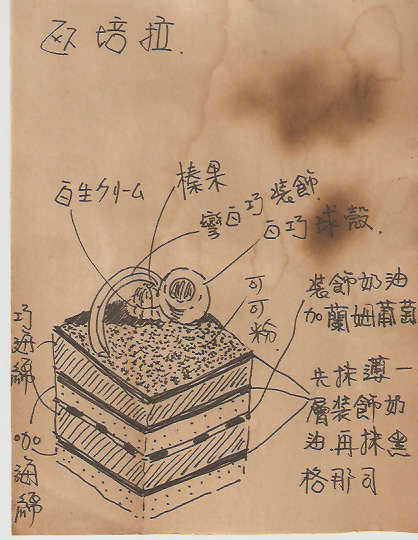 欧培拉.
榛果
百生クリーム
彎白巧裝飾
白巧球殼.
可可粉
裝飾奶油
加蘭姆葡萄
巧海綿
先抹薄一
層裝飾奶
油再抹黑
格那司
咖海綿